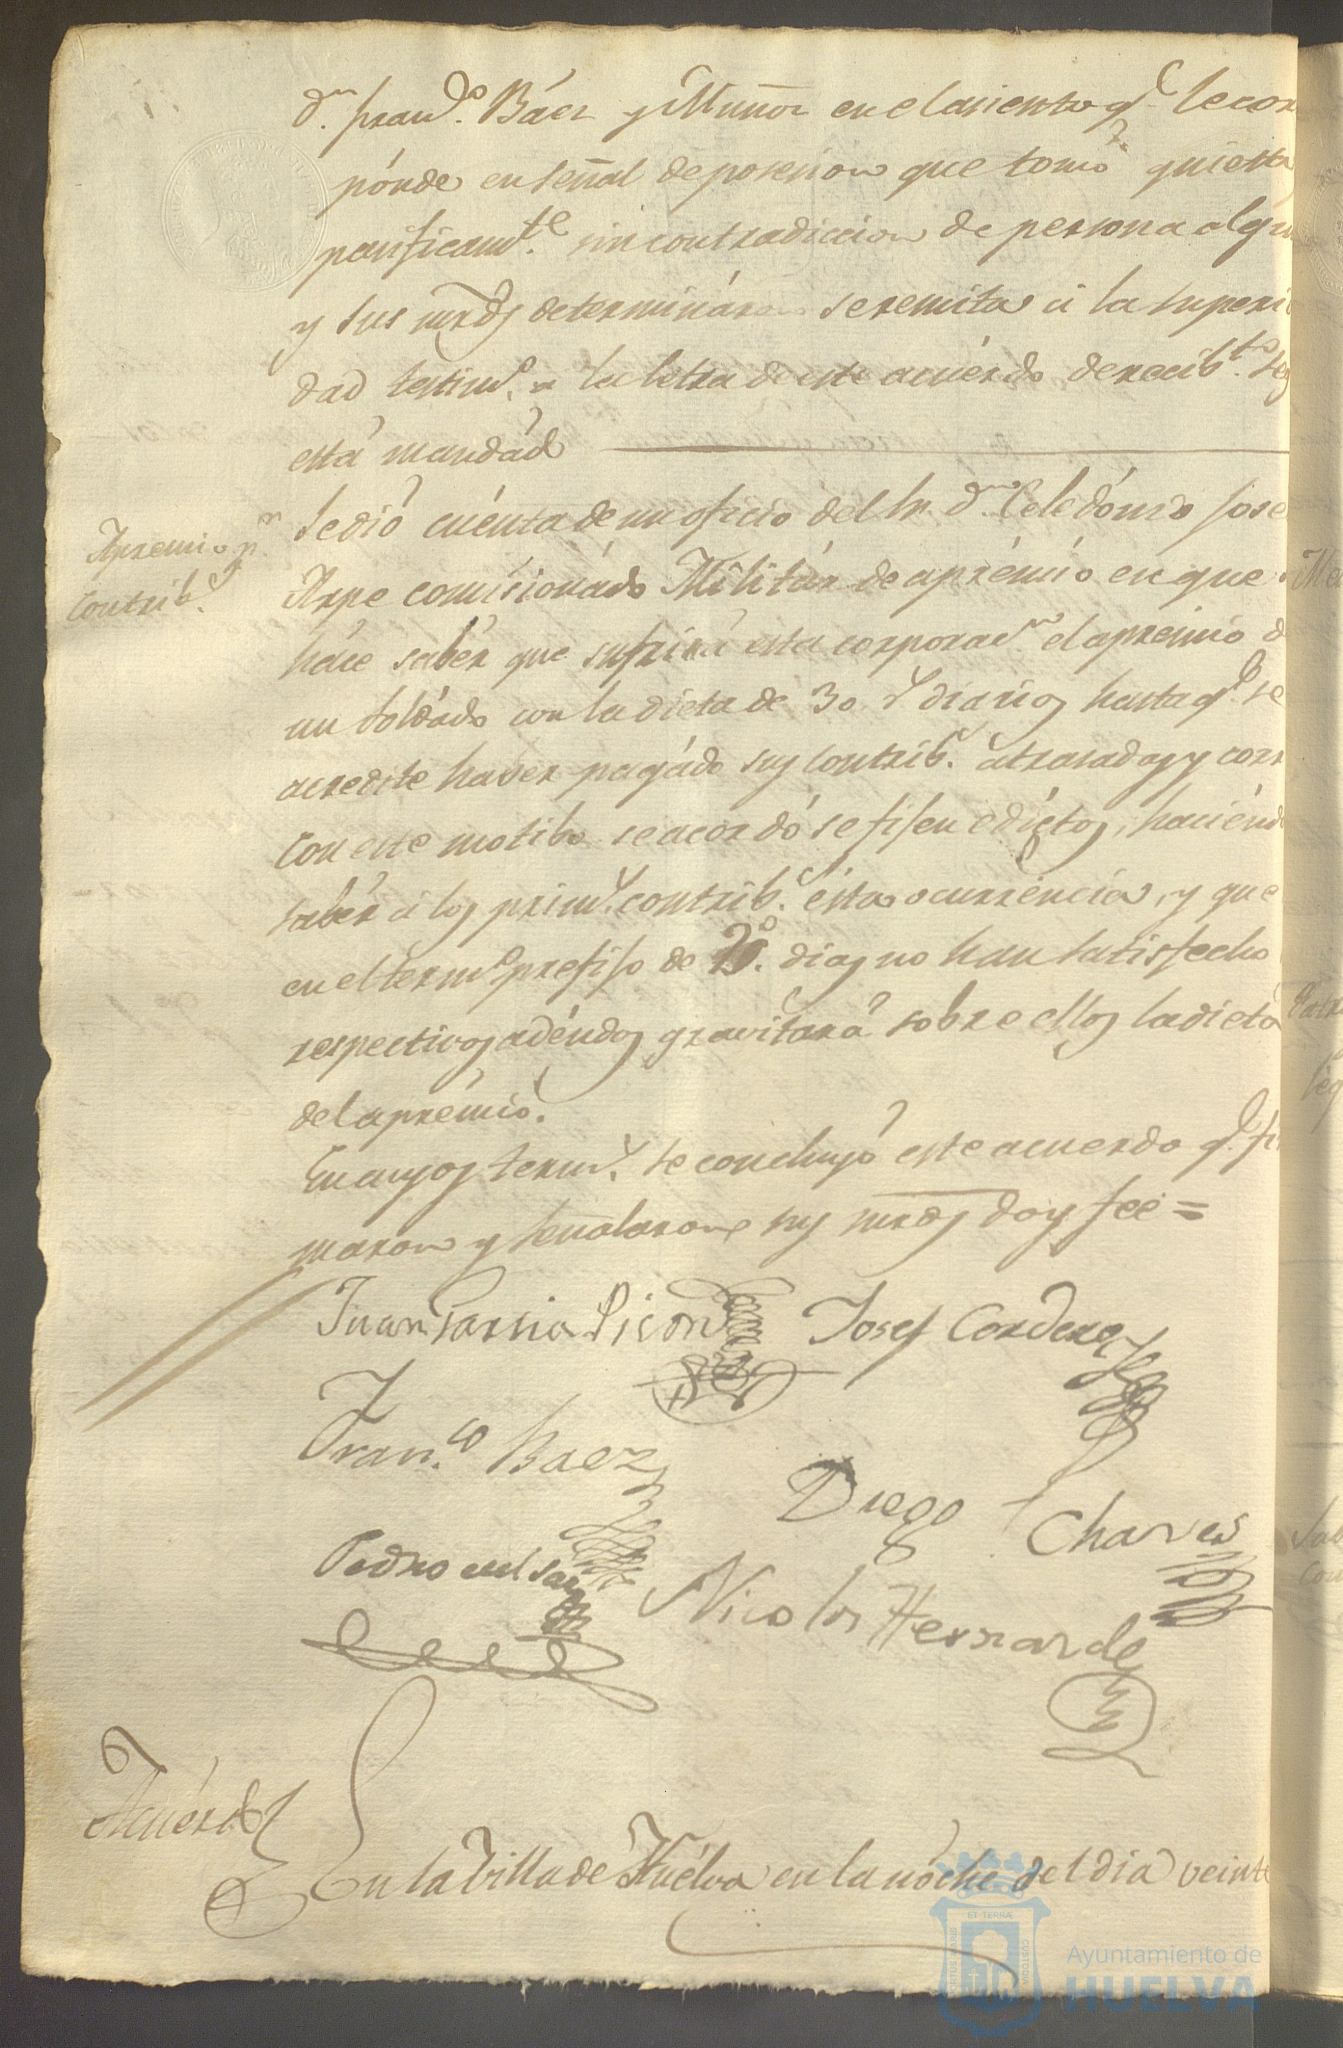 Dn. Franco. Báez y Muñoz en el asiento qe. le cor
ponde en señal de posesion que tomó quieta
pacificamte. sin contradiccion de persona algu
y sus mrds determinaron se remita á la superi
dad testimo. a la letra de este acuérdo de recibto. seg
está mandádo
Apremio pr.
contribs.
Se dió cuénta de un oficio del Sr. Dn. Celedónio Jose
Arpe comisionádo Militár de aprémio en que
háce sabér que sufrirá esta corporacn. el apremio d
un soldádo con la dieta de 30 rs diarios hasta qe. se
acredite haver pagádo sus contribs. atrasadas y corr
Con este motibo se acordó se fisen edictos, haciénd
sabér á los prims. contribs. ésta ocurréncia, y que
en el termo. prefiso de 2o. dias no han satisfecho
respectivos adéudos gravitará sobre ellos la dieta
del aprémio.
En cuyos terms. se concluyó este acuerdo qe. fir
maron y señalaron sus mrds doy fee =
Juan Garsia Pison
Josef Cordero
Franco. Baez
Diego Chaves
Pedro del
Nicolas Hernande
Acuérdo
En la Villa de Huélva en la nóche del dia veinte
ET TERRÆ
CUSTODIA
Ayuntamiento de
HUELVA